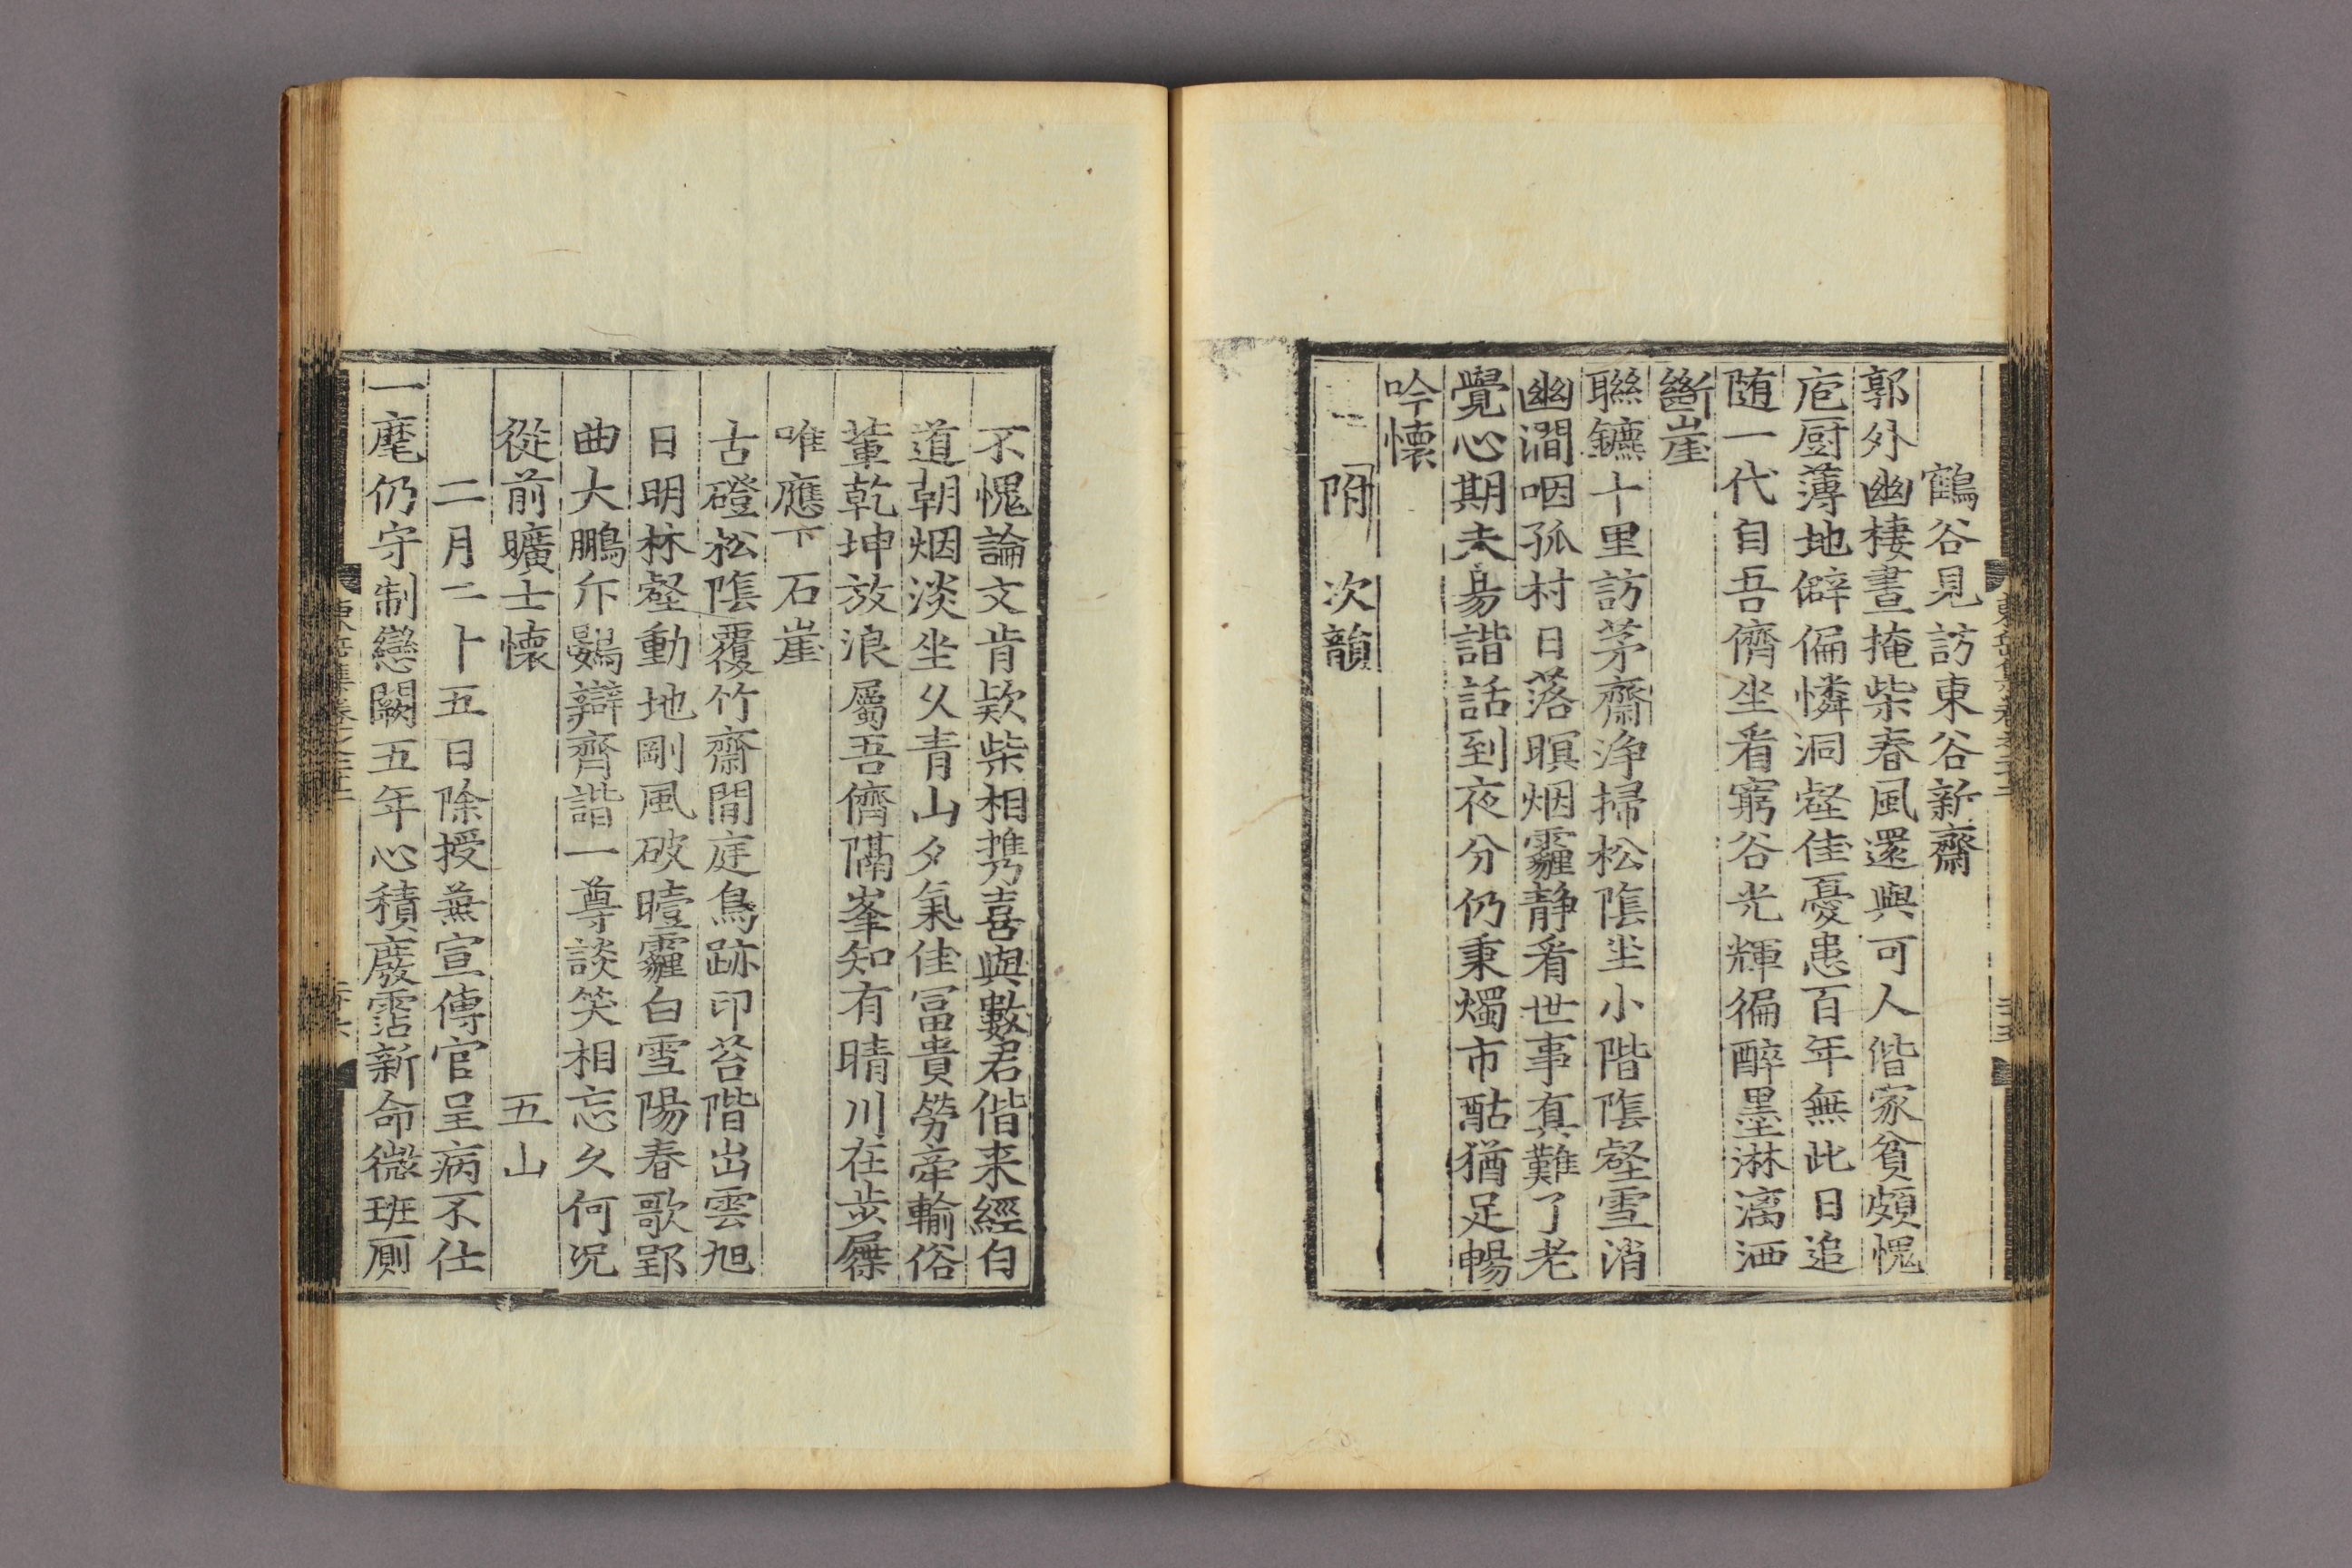 鶴谷見訪東谷新齋
郭外幽棲晝掩柴春風還與可人偕家貧頗愧
庖厨薄地僻偏憐洞壑佳憂患百年無此日追
随一代自吾儕坐看窮谷光輝徧醉墨淋漓洒
斷崖
聯鑣十里訪茅齋淨掃松陰坐小階陰壑雪消
幽澗咽孤村日落暝烟霾静看世事真難了老
覺心期未易諧話到夜分仍秉燭市酤猶足暢
吟懷
附 次韻
不愧論文肯欵柴相携喜與數君偕来經白
道朝烟淡坐久青山夕氣佳冨貴勞牽輸俗
輩乾坤放浪屬吾儕隔峯知有晴川在步屧
唯應下石崖
古磴松陰覆竹齋閒庭鳥跡印苔階出雲旭
日明林壑動地剛風破曀霾白雪陽春歌郢
曲大鵬斥鷃辯齊諧一尊談笑相忘久何况
從前曠士懷 五山
二月二十五日除授蕪宣傳官呈病不仕
一麾仍守制戀闕五年心積廢霑新命微班厠